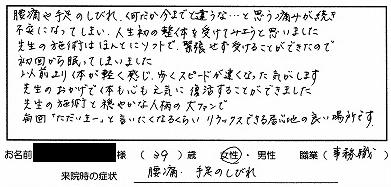 腰痛や手足のしびれ、何だか今までと違うな…と思う痛みが続き
不安になってしまい、人生初の整体を受けてみようと思いました
先生の施術はほんとにソフトで、緊張せず受けることができたので
初回から眠ってしまいました
以前より体が軽く感じ、歩くスピードが速くなった気がします
先生のおかげで体も心も元気に復活することができました
先生の施術と穏やかな人柄の大ファンで
毎回「ただいまー」と言いたくなるくらいリラックスできる居心地の良い場所です
お名前 様 (39) 歳 女性・男性 職業(事務職)
来院時の症状 腰痛・手足のしびれ